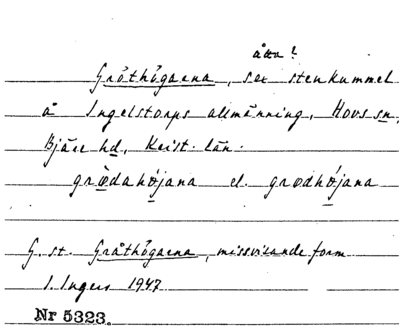 åtta?
Gröthögarna, sex stenkummel
å Ingelstorps allmänning, Hovs sn,
Bjäre hd, Krist. län.
grødahøjana el. grødhøjana
G. st. Gråthögarna, missvisande form
I. Ingers 1947
Nr 5323.